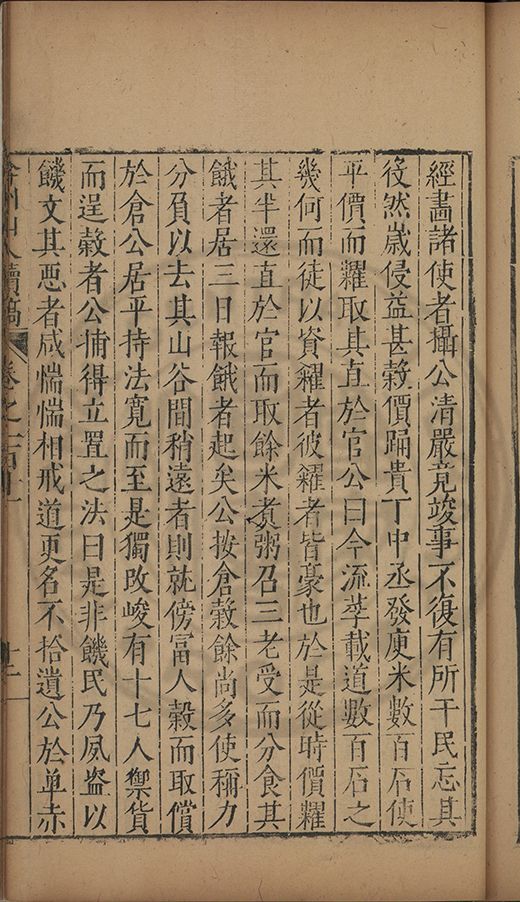 經畫諸使者攝公清嚴竟竣事不復有所干民忘其
役然歲侵益甚榖價踊貴丁中丞發庾米數百石使
平價而糶取其直於官公曰今流莩載道數百石之
幾何而徒以資糶者彼糶者皆豪也於是從時價糶
其半還直於官而取餘米煑粥召三老受而分食其
餓者居三日報餓者起矣公按倉榖餘尚多使稱力
分負以去其山谷間稍遠者則就傍冨人榖而取償
於倉公居平持法寬而至是獨改峻有十七人禦貨
而逞榖者公捕得立置之法曰是非饑民乃夙盗以
饑文其惡者咸惴惴相戒道更名不拾遺公於单赤
弇州山人續稿 卷之一百十 十二